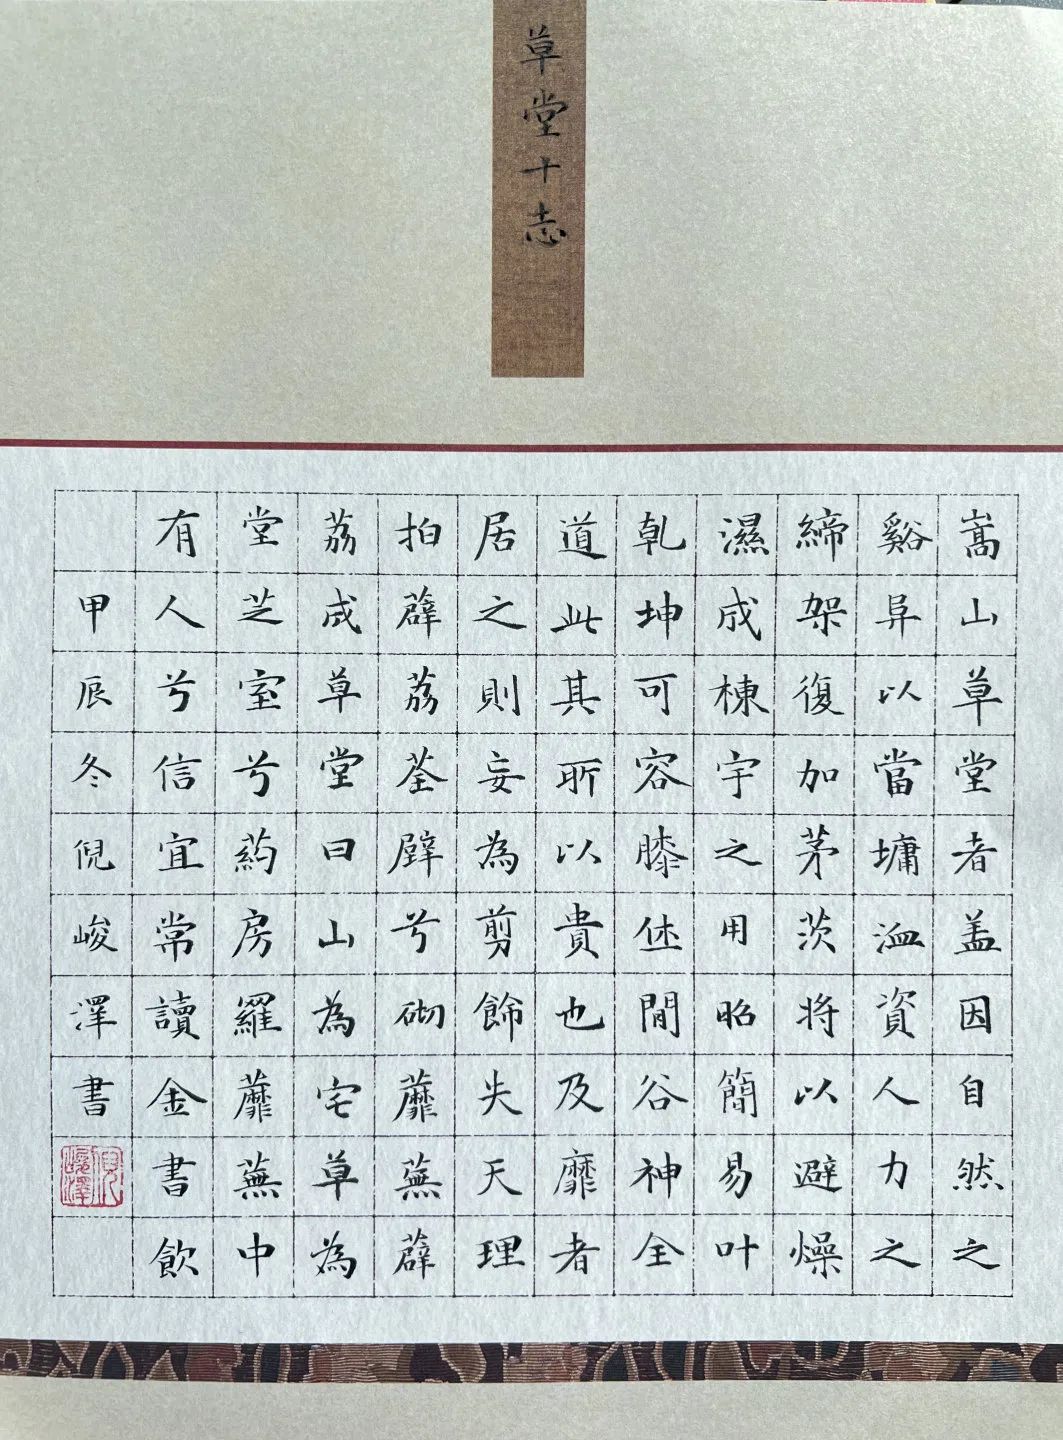 草堂十志
嵩山草堂者盖因自然之
谿阜以當墉洫資人力之
締架復加茅茨將以避燥
濕成棟宇之用昭簡易叶
乹坤可容膝休閒谷神全
道此其所以貴也及靡者
居之則妄為剪餙失天理
拍薜荔荃壁兮砌蘼蕪薜
荔成草堂曰山為宅草為
堂芝室兮葯房羅蘼蕪中
有人兮信宜常讀金書飲
甲辰冬倪峻澤書
倪峻澤